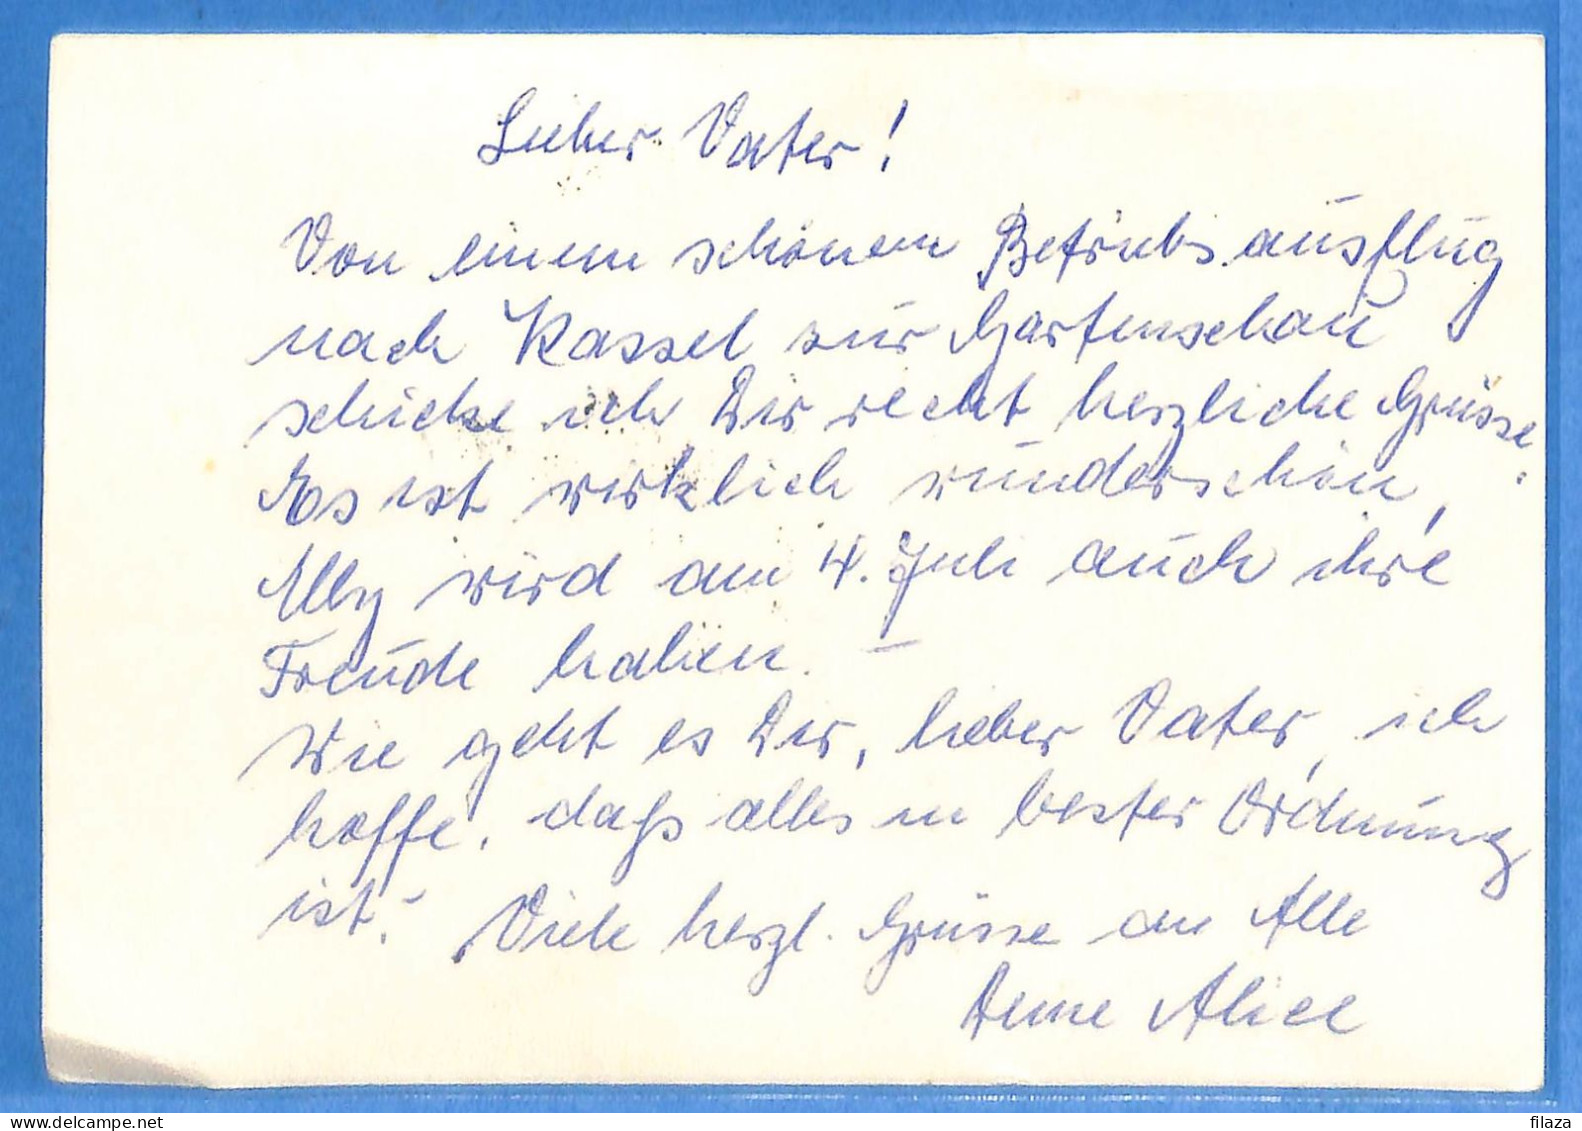 Lieber Vater!
Von einem schönen Betriebsausflug
nach Kassel zur Gartenschau
schicke ich Dir recht herzliche Grüsse.
Es ist wirklich wunderschön,
Elly wird am 4. Juli auch ihre
Freude haben. –
Wie geht es Dir, lieber Vater, ich
hoffe, daß alles in bester Ordnung
ist. Viele herzl. Grüsse an Alle
Deine Alice
delcampe.net
filaza